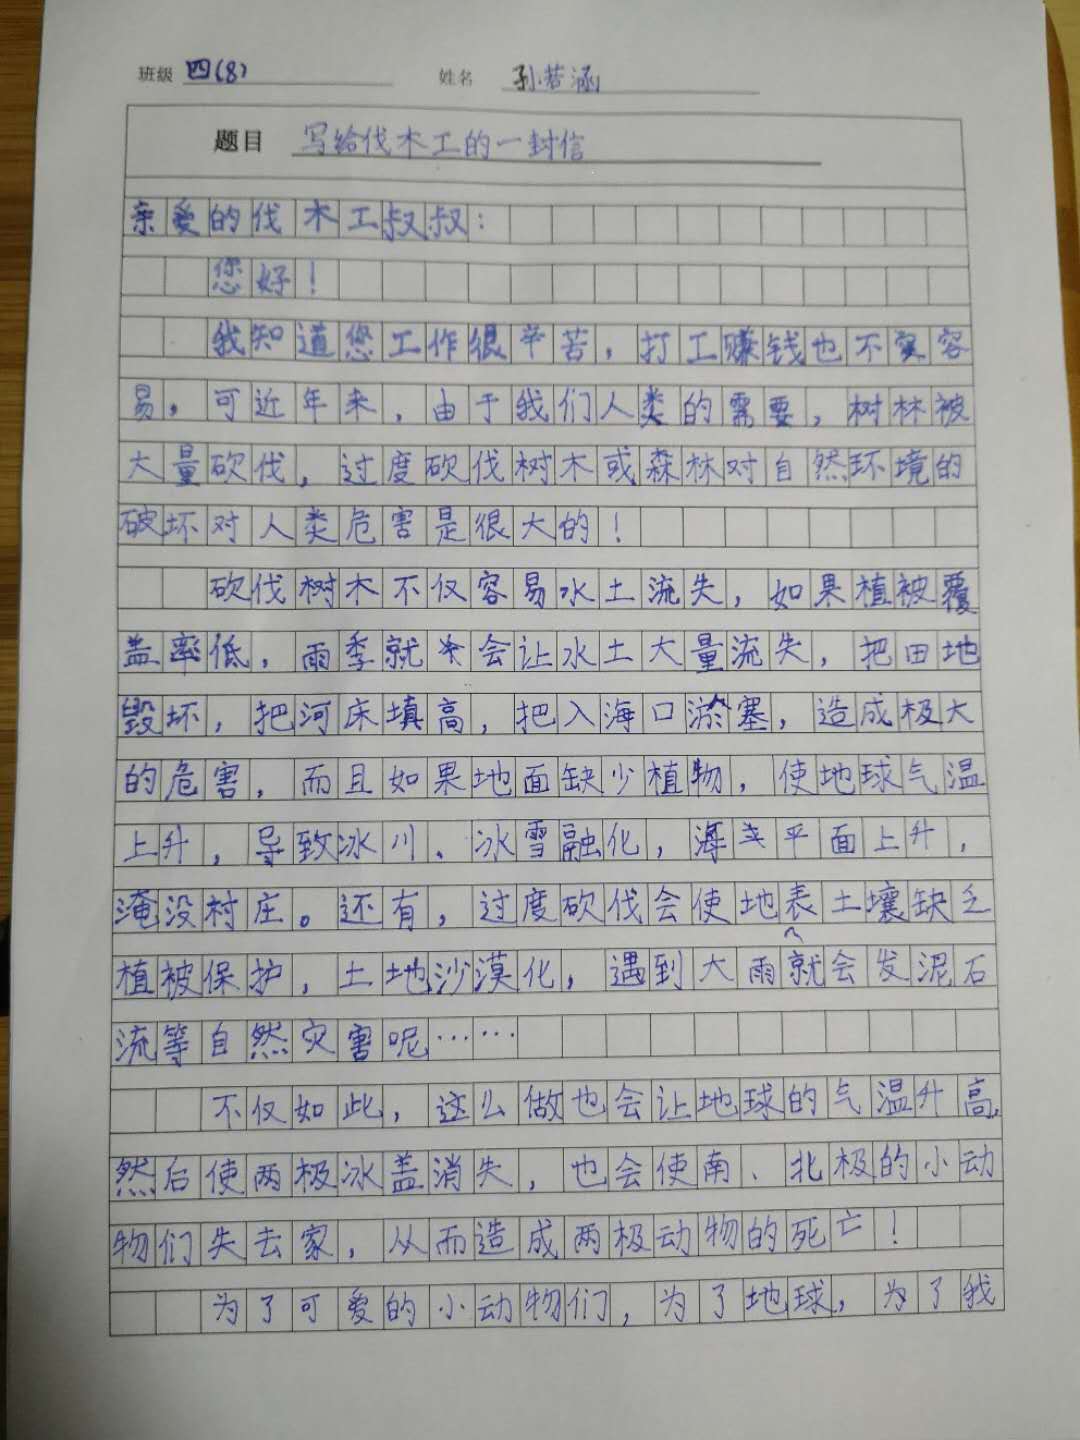 班级 四(8) 姓名 孙若涵
题目 写给伐木工的一封信
亲爱的伐木工叔叔：
您好！
我知道您工作很辛苦，打工赚钱也不容
易，可近年来，由于我们人类的需要，树林被
大量砍伐，过度砍伐树木或森林对自然环境的
破坏对人类危害是很大的！
砍伐树木不仅容易水土流失，如果植被覆
盖率低，雨季就会让水土大量流失，把田地
毁坏，把河床填高，把入海口淤塞，造成极大
的危害，而且如果地面缺少植物，使地球气温
上升，导致冰川、冰雪融化，海平面上升，
淹没村庄。还有，过度砍伐会使地表土壤缺乏
植被保护，土地沙漠化，遇到大雨就会发泥石
流等自然灾害呢……
不仅如此，这么做也会让地球的气温升高，
然后使两极冰盖消失，也会使南、北极的小动
物们失去家，从而造成两极动物的死亡！
为了可爱的小动物们，为了地球，为了我